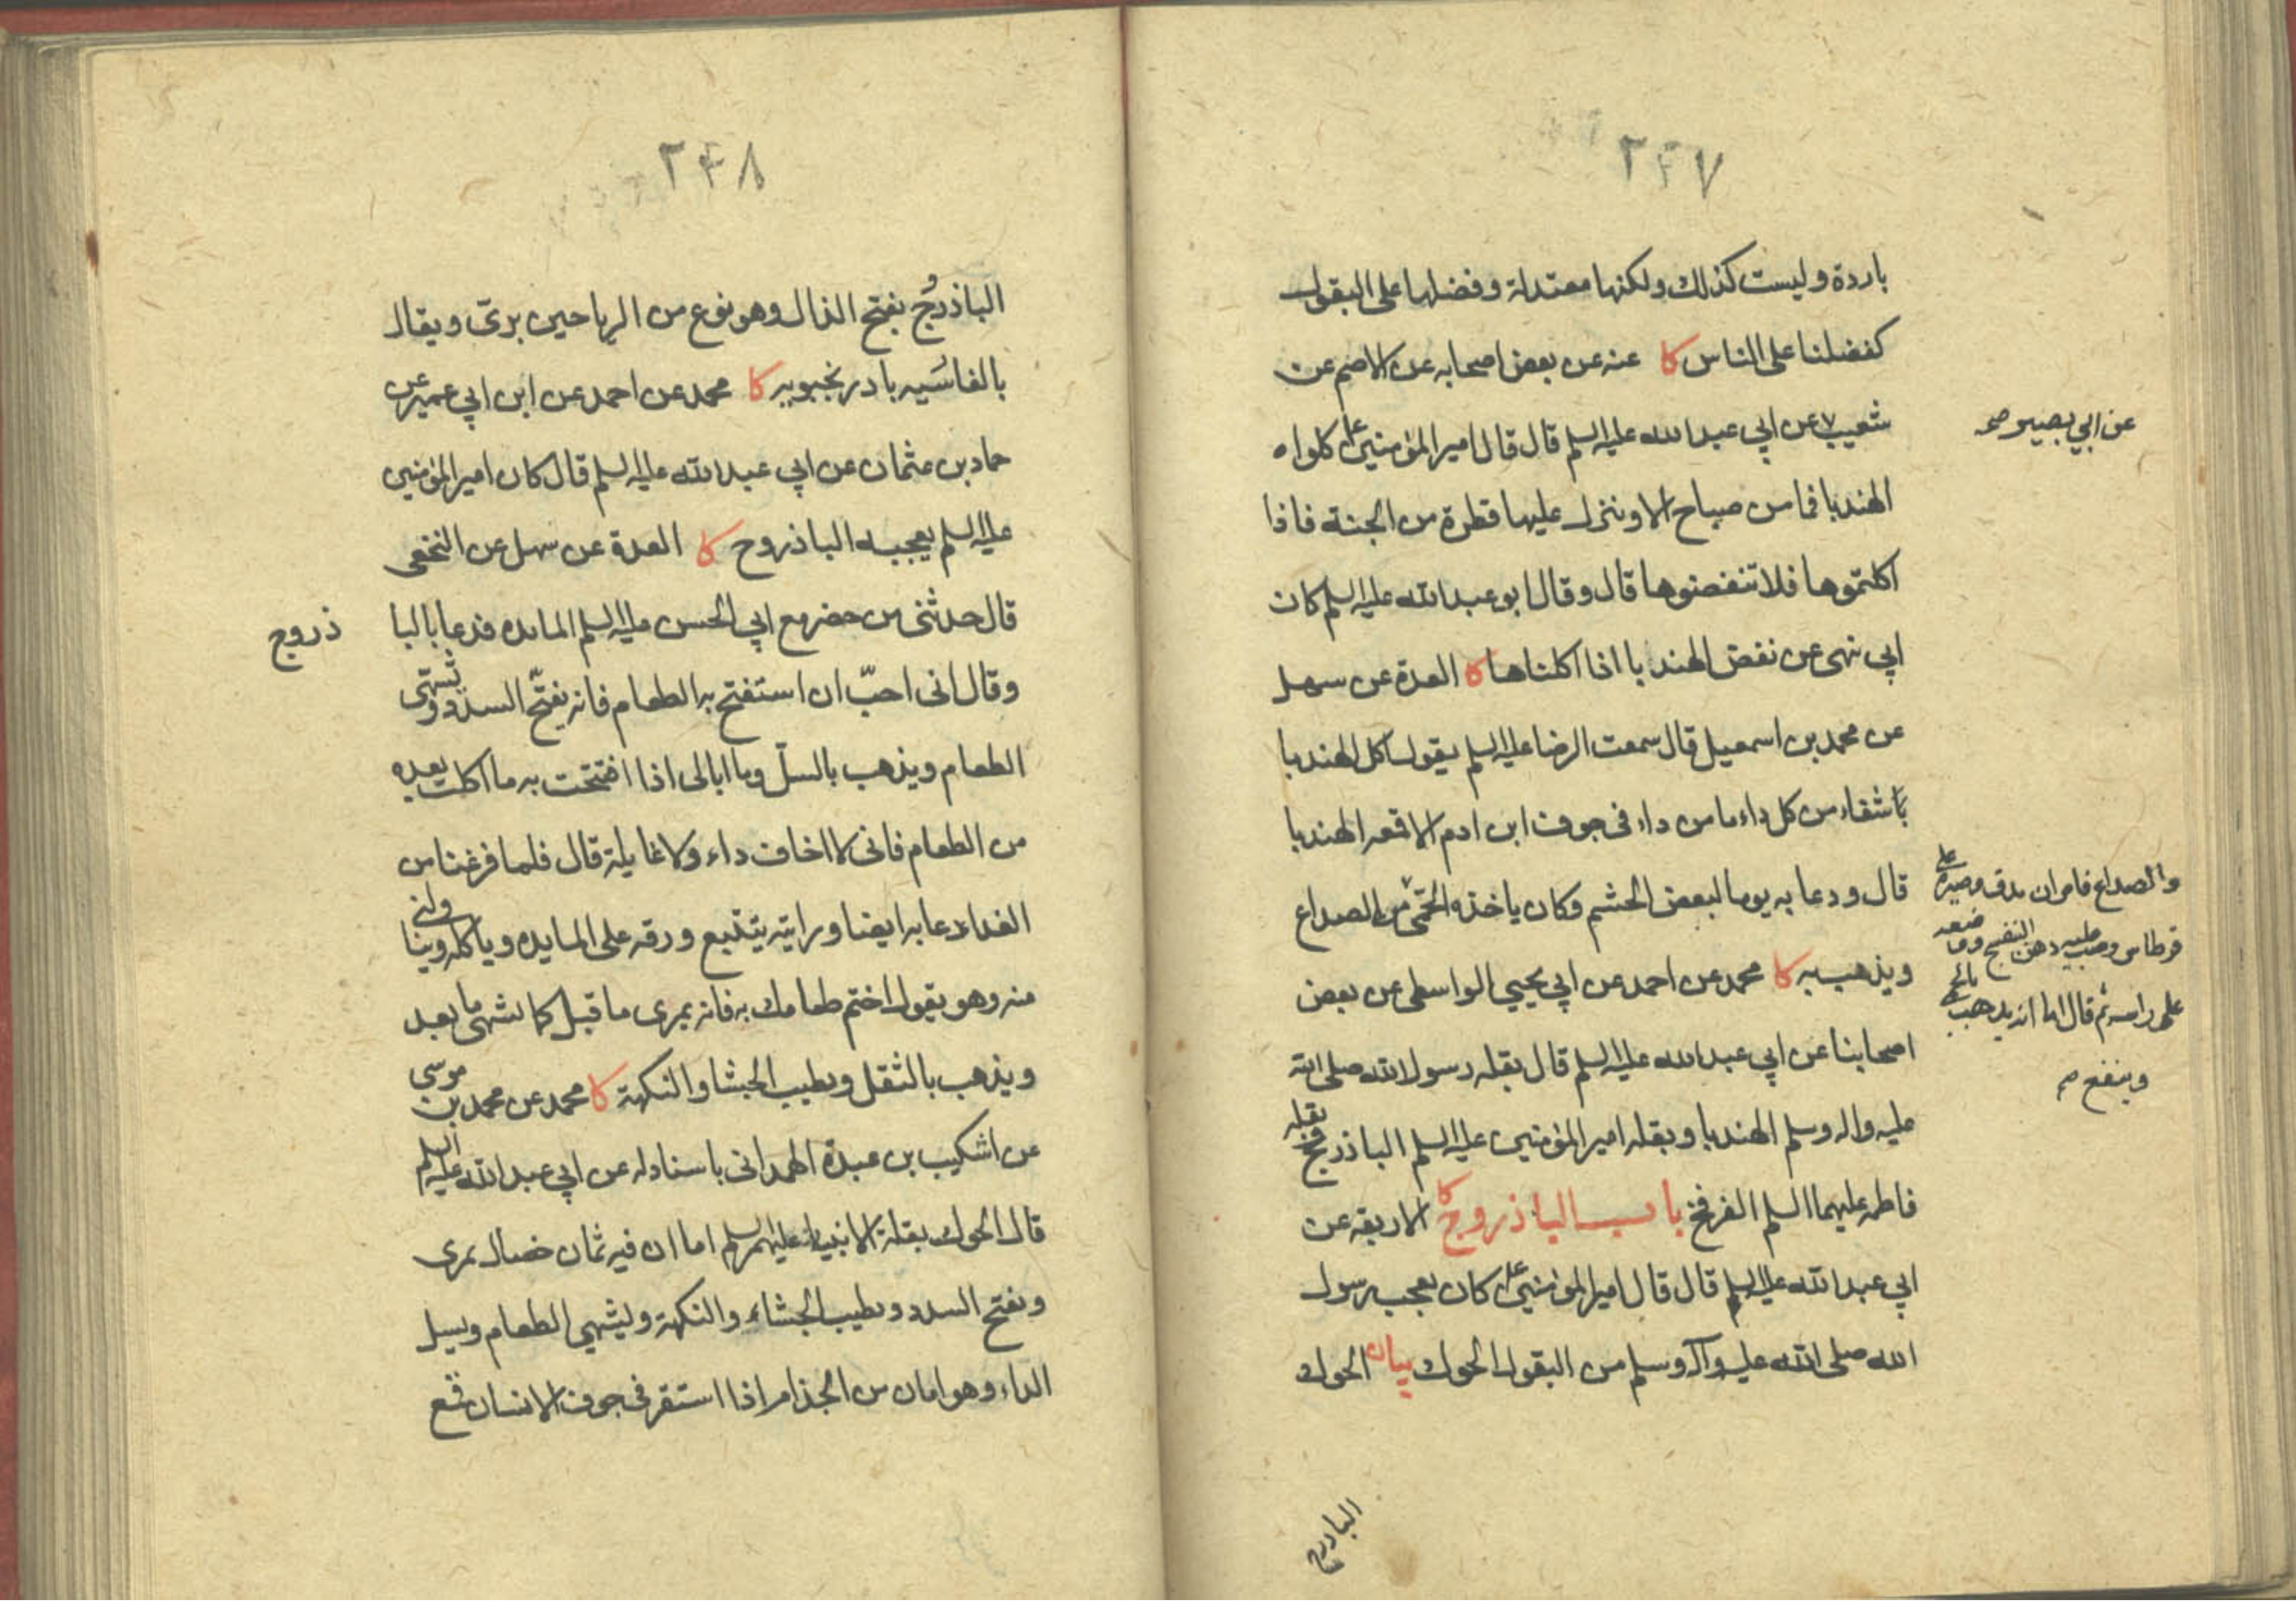 ٢٤٧
باردة وليست كذلك ولكنها معتدلة وفضلها على البقول
كفضلنا على الناس كا عنه عن بعض اصحابه عن الاصم عن
شعيب عن ابي عبد الله عليه السلم قال قال امير المؤمنين ع كلوا
عن ابي بصير صح
الهندبا فما من صباح الا وننزل عليها قطرة من الجنة فاذا
اكلتموها فلا تنفضوها قال وقال ابو عبد الله عليه السلم كان
ابي نهى عن نفض الهندبا اذا اكلناها كا العدة عن سهل
عن محمد بن اسمعيل قال سمعت الرضا عليه السلم يقول اكل الهندبا
شفاء من كل داء ما من داء في جوف ابن ادم الا قمعه الهندبا
قال ودعا به يوما لبعض الحشم وكان ياخذه الحمى والصداع
والصداع فامر ان يدق وصيره على
قرطاس وصب عليه دهن البنفسج ووضعه
على راسه ثم قال اما انه يذهب بالحمى
وينفع صح
ويذهب به كا محمد عن احمد عن ابي يحيي الواسطى عن بعض
اصحابنا عن ابي عبد الله عليه السلم قال بقلة رسول الله صلى الله
عليه واله وسلم الهندبا وبقلة امير المؤمنين عليه السلم الباذروج وبقلة
فاطمه عليهما السلم الفرفخ باب الباذروج كا الاربعة عن
ابي عبد الله عليه السلم قال قال امير المؤمنين ع كان يعجب رسول
الله صلى الله عليه وآله وسلم من البقول الحوك بيان الحوك
الباذروج
٢٤٨
الباذروج بفتح الذال وهو نوع من الرياحين برى ويقال
بالفاسيه بادرنجبويه كا محمد عن احمد عن ابن ابي عمير عن
حماد بن عثمان عن ابي عبد الله عليه السلم قال كان امير المؤمنين
عليه السلم يعجبه الباذروج كا العدة عن سهل عن النخعى
قال حدثنى من حضر مع ابي الحسن عليه السلم المايده فدعا بالبا
ذروج
وقال انى احبّ ان استفتح به الطعام فانه يفتّح السدد وتشهى
الطعام ويذهب بالسلّ وما ابالى اذا افتتحت به ما اكلت بعده
من الطعام فانى لا اخاف داء ولا غايلة قال فلما فرغنا من
الغداء دعا به ايضا ورايته يتتبع ورقه على المايده وياكله ويناولنى
منه وهو يقول اختم طعامك به فانه يمرى ما قبل كما تشهى ما بعد
ويذهب بالثقل ويطيب الجشا والنكهة كا محمد عن محمد بن موسى
عن اشكيب بن عبدة الهمدانى باسناد له عن ابي عبد الله عليه السلم
قال الحوك بقلة الانبياء عليهم السلم اما ان فيه ثمان خصال يمرى
ويفتح السدد ويطيب الجشاء والنكهة ويشهي الطعام ويسل
الداء وهو امان من الجذام اذا استقر في جوف الانسان قمع